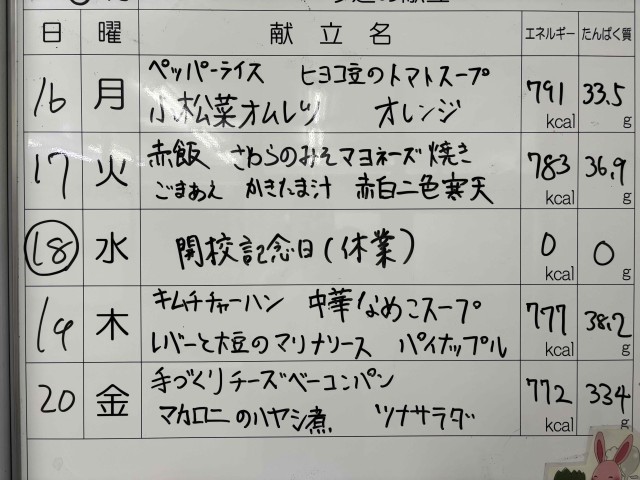 日 曜 献立名 エネルギー たんぱく質
16 月 ペッパーライス ヒヨコ豆のトマトスープ 791 kcal 33.5 g
小松菜オムレツ オレンジ
17 火 赤飯 さわらのみそマヨネーズ焼き 783 kcal 36.9 g
ごまあえ かきたま汁 赤白二色寒天
18 水 開校記念日(休業) 0 kcal 0 g
19 木 キムチチャーハン 中華なめこスープ 777 kcal 38.2 g
レバーと大豆のマリナソース パイナップル
20 金 手づくりチーズベーコンパン 772 kcal 334 g
マカロニのハヤシ煮 ツナサラダ